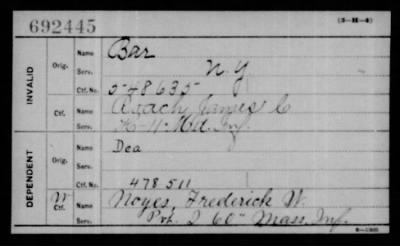 692445
(3-H-4)
INVALID
Orig.
Name
Bar
Serv.
N.Y
Ctf. No.
548635
Ctf.
Name
Roach, James C
Serv.
K-11-Md. Inf.
DEPENDENT
Orig.
Name
Dea
Serv.
Ctf. No.
478511
W
Ctf.
Name
Noyes, Frederick W.
Serv.
Pvt. I 60" Mass. Inf.